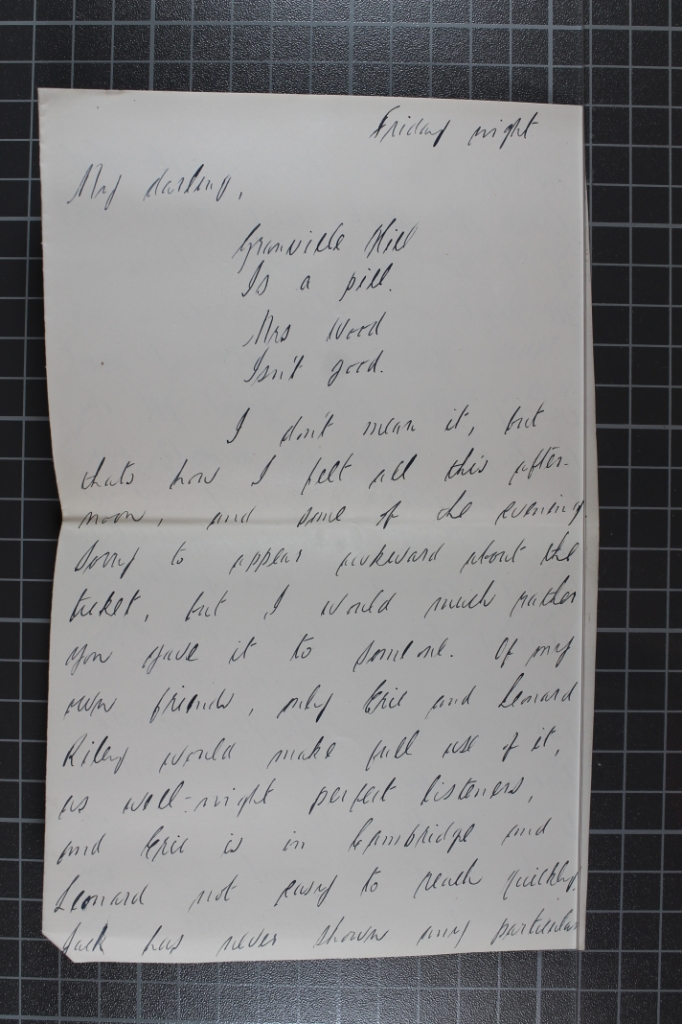 Friday night
My darling,
Granville Hill
Is a pill.
Mrs Wood
Isn't good.
I don't mean it, but
thats how I felt all this after-
noon, and some of the evening.
Sorry to appear awkward about the
ticket, but I would much rather
you gave it to someone. Of my
own friends, only Eric and Leonard
Riley would make full use of it,
as well-night perfect listeners,
and Eric is in Cambridge and
Leonard not easy to reach quickly.
Jack has never shown any particular